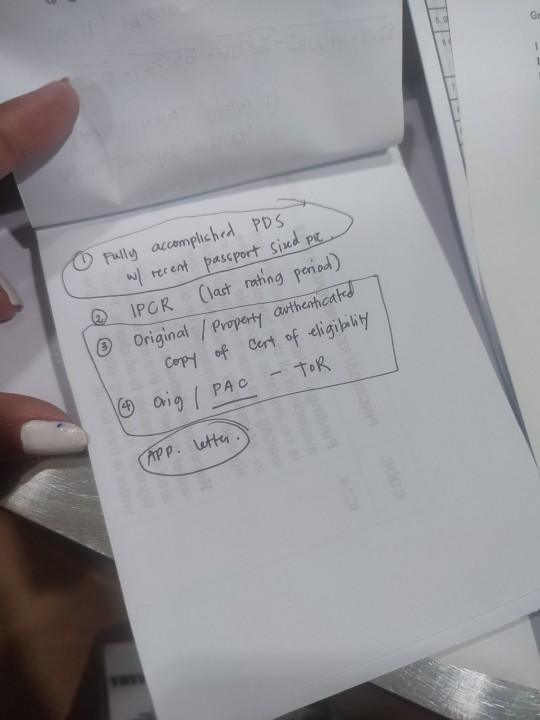 ① Fully accomplished PDS
w/ recent passport sized pic.
② IPCR (last rating period)
③ Original / Property authenticated
copy of cert of eligibility
④ Orig / PAC - TOR
APP. letter.